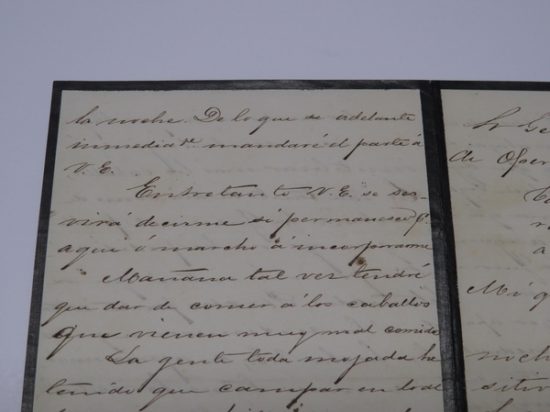 la noche. De lo que se adelante
inmediate. mandaré el parte á
V.E.
Entretanto V.E. se ser-
virá decirme si permanesco pr.
aqui ó marcho á incorporarme
Mañana tal vez tendré
que dar de comer á los caballos
que vienen muy mal comidos
La gente toda mojada ha
tenido que campar en lodo
Sr Ge
de Oper
a
Mi q
noche
sitir